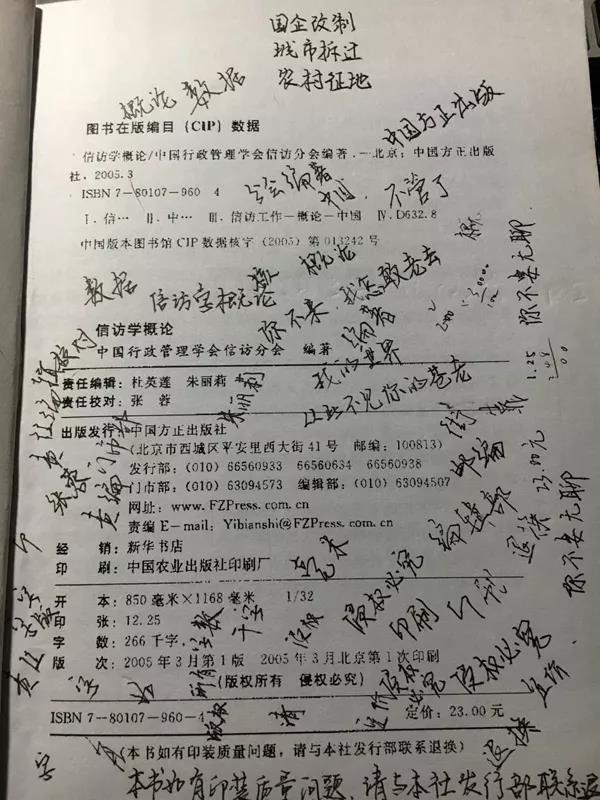 国企改制
城市拆迁
农村征地
概论 数据
中国方正出版
图书在版编目（CIP）数据
信访学概论/中国行政管理学会信访分会编著．—北京：中国方正出版
社，2005.3
ISBN 7—80107—960—4
会 编著 中国 不管了
Ⅰ．信… Ⅱ．中… Ⅲ．信访工作—概论—中国 Ⅳ．D632.8
中国版本图书馆CIP数据核字（2005）第013242号
数据 信访学概论 概论
你不来，我怎敢老去
你不要无聊
编著
信访学概论
中国行政管理学会信访分会 编著
我的世界
让我不见你的苍老
责任编辑：杜英莲 朱丽莉
责任校对：张蓉
1.25
出版发行：中国方正出版社
（北京市西城区平安里西大街41号 邮编：100813）
发行部：（010）66560933 66560634 66560938
门市部：（010）63094573 编辑部：（010）63094507
网址：www.FZPress.com.cn
责编E—mail：Yibianshi@FZPress.com.cn
邮编
编辑部
23.00元
退换
你不要无聊
经 销：新华书店
印 刷：中国农业出版社印刷厂
开 本：850毫米×1168毫米 1/32
印 张：12.25
字 数：266千字
版 次：2005年3月第1版 2005年3月北京第1次印刷
（版权所有 侵权必究）
侵权必究
印刷
字数 千字
版权
侵权必究
侵权必究
定价
ISBN 7—80107—960—4
请
定价：23.00元
退换
（本书如有印装质量问题，请与本社发行部联系退换）
本书如有印装质量问题，请与本社发行部联系退